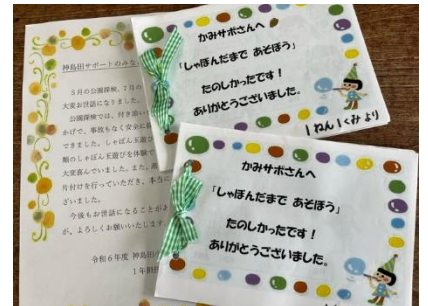 神島田サポートのみな
5月の公園探検、7月の
大変お世話になりました。
公園探検では、付き添い
かげで、事故もなく安全に
できました。しゃぼん玉遊び
類のしゃぼん玉遊びを体験で
大変喜んでいました。また、
片付けを行っていただき、本当に
ざいました。
今後もお世話になることがあ
が、よろしくお願いいたします
令和6年度 神島田
1年担任
かみサポさんへ
「しゃぼんだまで あそぼう」
たのしかったです!
ありがとうございました。
1ねん1くみ より
かみサポさんへ
「しゃぼんだまで あそぼう」
たのしかったです!
ありがとうございました。